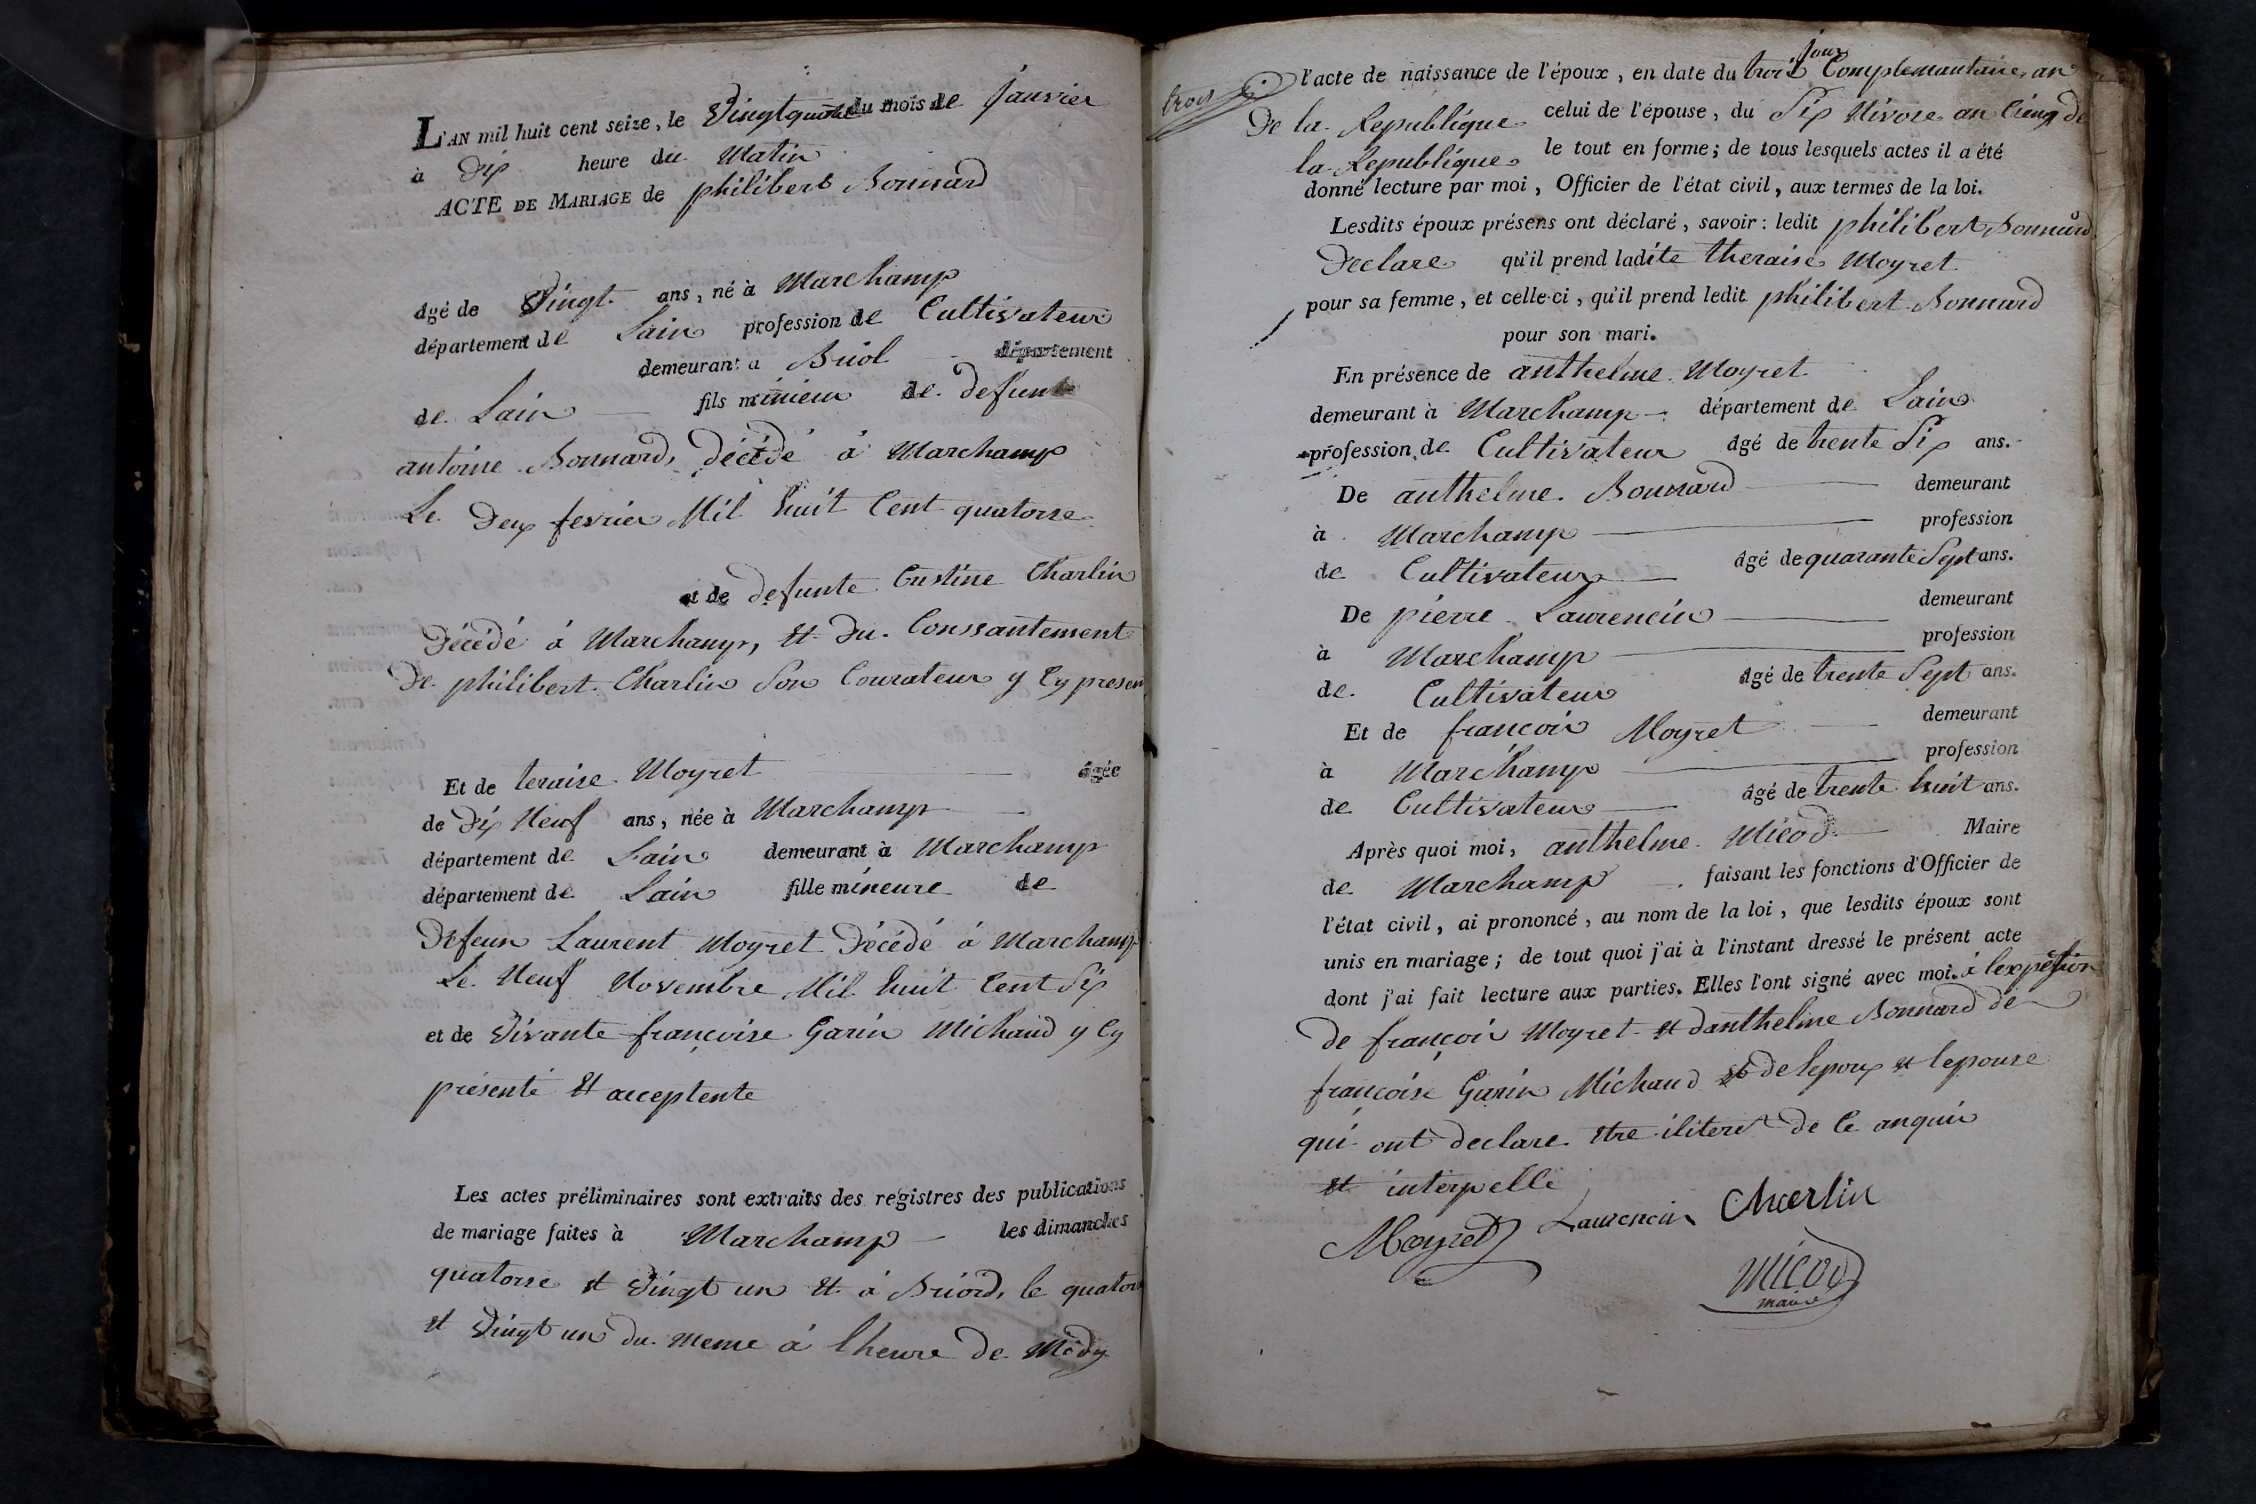 L'AN mil huit cent seize, le Vingtquatre du mois de janvier
à Dix heure du Matin
ACTE DE MARIAGE de philibert Bonnard
âgé de Vingt ans, né à Marchamp
département de Lain profession de Cultivateur
demeurant a Briol département
de Lain fils mineur de defunt
antoine Bonnard, décédé à Marchamp
Le Deux fevrier Mil huit Cent quatorse
et de defunte Cristine Charlin
Décédé à Marchamp, Et Du Conssantement
De philibert Charlin Son Courateur y Cy presen
Et de teraise Moyret âgée
de Dix Neuf ans, née à Marchamp
département de Lain demeurant à Marchamp
département de Lain fille mineure de
Defeun Laurent Moyret Décédé à Marchamp
Le Neuf Novembre Mil huit Cent Six
et de Vivante françoise Garin Michaud y Cy
présenté Et acceptente
Les actes préliminaires sont extraits des registres des publications
de mariage faites à Marchamp les dimanches
quatorse et Vingt un Et à Briord, le quator
et Vingt un du meme à lheure de Midy
l'acte de naissance de l'époux, en date du trois jour Complemantaire, an
trois
De la Republique celui de l'épouse, du Six Nivose an Cinq de
la Republique le tout en forme; de tous lesquels actes il a été
donné lecture par moi, Officier de l'état civil, aux termes de la loi.
Lesdits époux présens ont déclaré, savoir: ledit philibert Bonnard
Declare qu'il prend ladite theraise Moyret
pour sa femme, et celle-ci, qu'il prend ledit philibert Bonnard
pour son mari.
En présence de anthelme Moyret
demeurant à Marchamp département de Lain
profession de Cultivateur âgé de trente Six ans.
De anthelme Bonnard demeurant
à Marchamp profession
de Cultivateur âgé de quarante Sept ans.
De pierre Laurencin demeurant
à Marchamp profession
de Cultivateur âgé de trente Sept ans.
Et de francois Moyret demeurant
à Marchamp profession
de Cultivateur âgé de trente huit ans.
Après quoi moi, anthelme Micod Maire
de Marchamp faisant les fonctions d'Officier de
l'état civil, ai prononcé, au nom de la loi, que lesdits époux sont
unis en mariage; de tout quoi j'ai à l'instant dressé le présent acte
dont j'ai fait lecture aux parties. Elles l'ont signé avec moi. à lexpestion
de françois Moyret et danthelme Bonnard de
françoise Garin Michaud et de lepoux et lepouse
qui ont declare etre iliteré de Ce anquis
et interpellé
Moyret Laurencin Charlin
Micod
maire